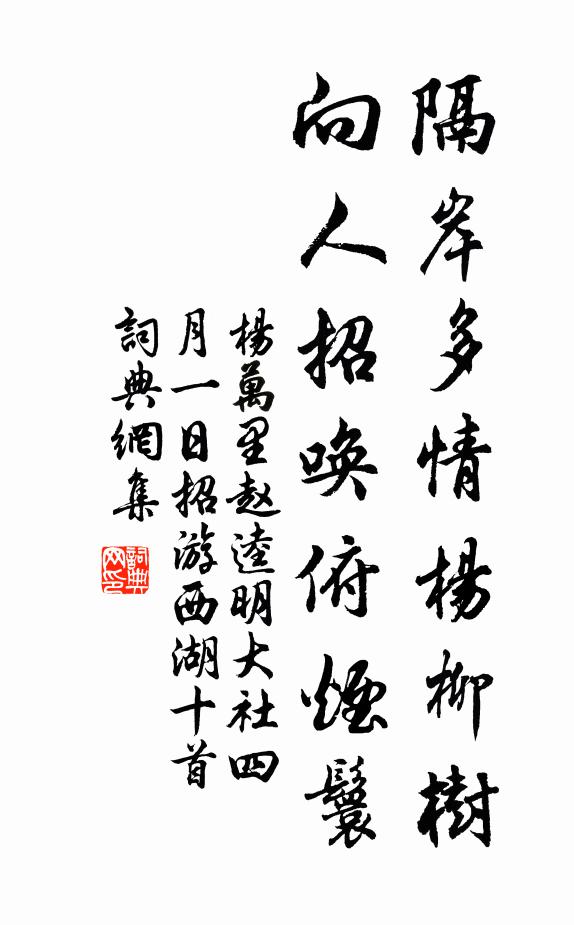 隔岸多情楊柳樹
向人招喚俯煙鬟
楊萬里赵逵明大社四
月一日招游西湖十首
詞典網集
詞典网印